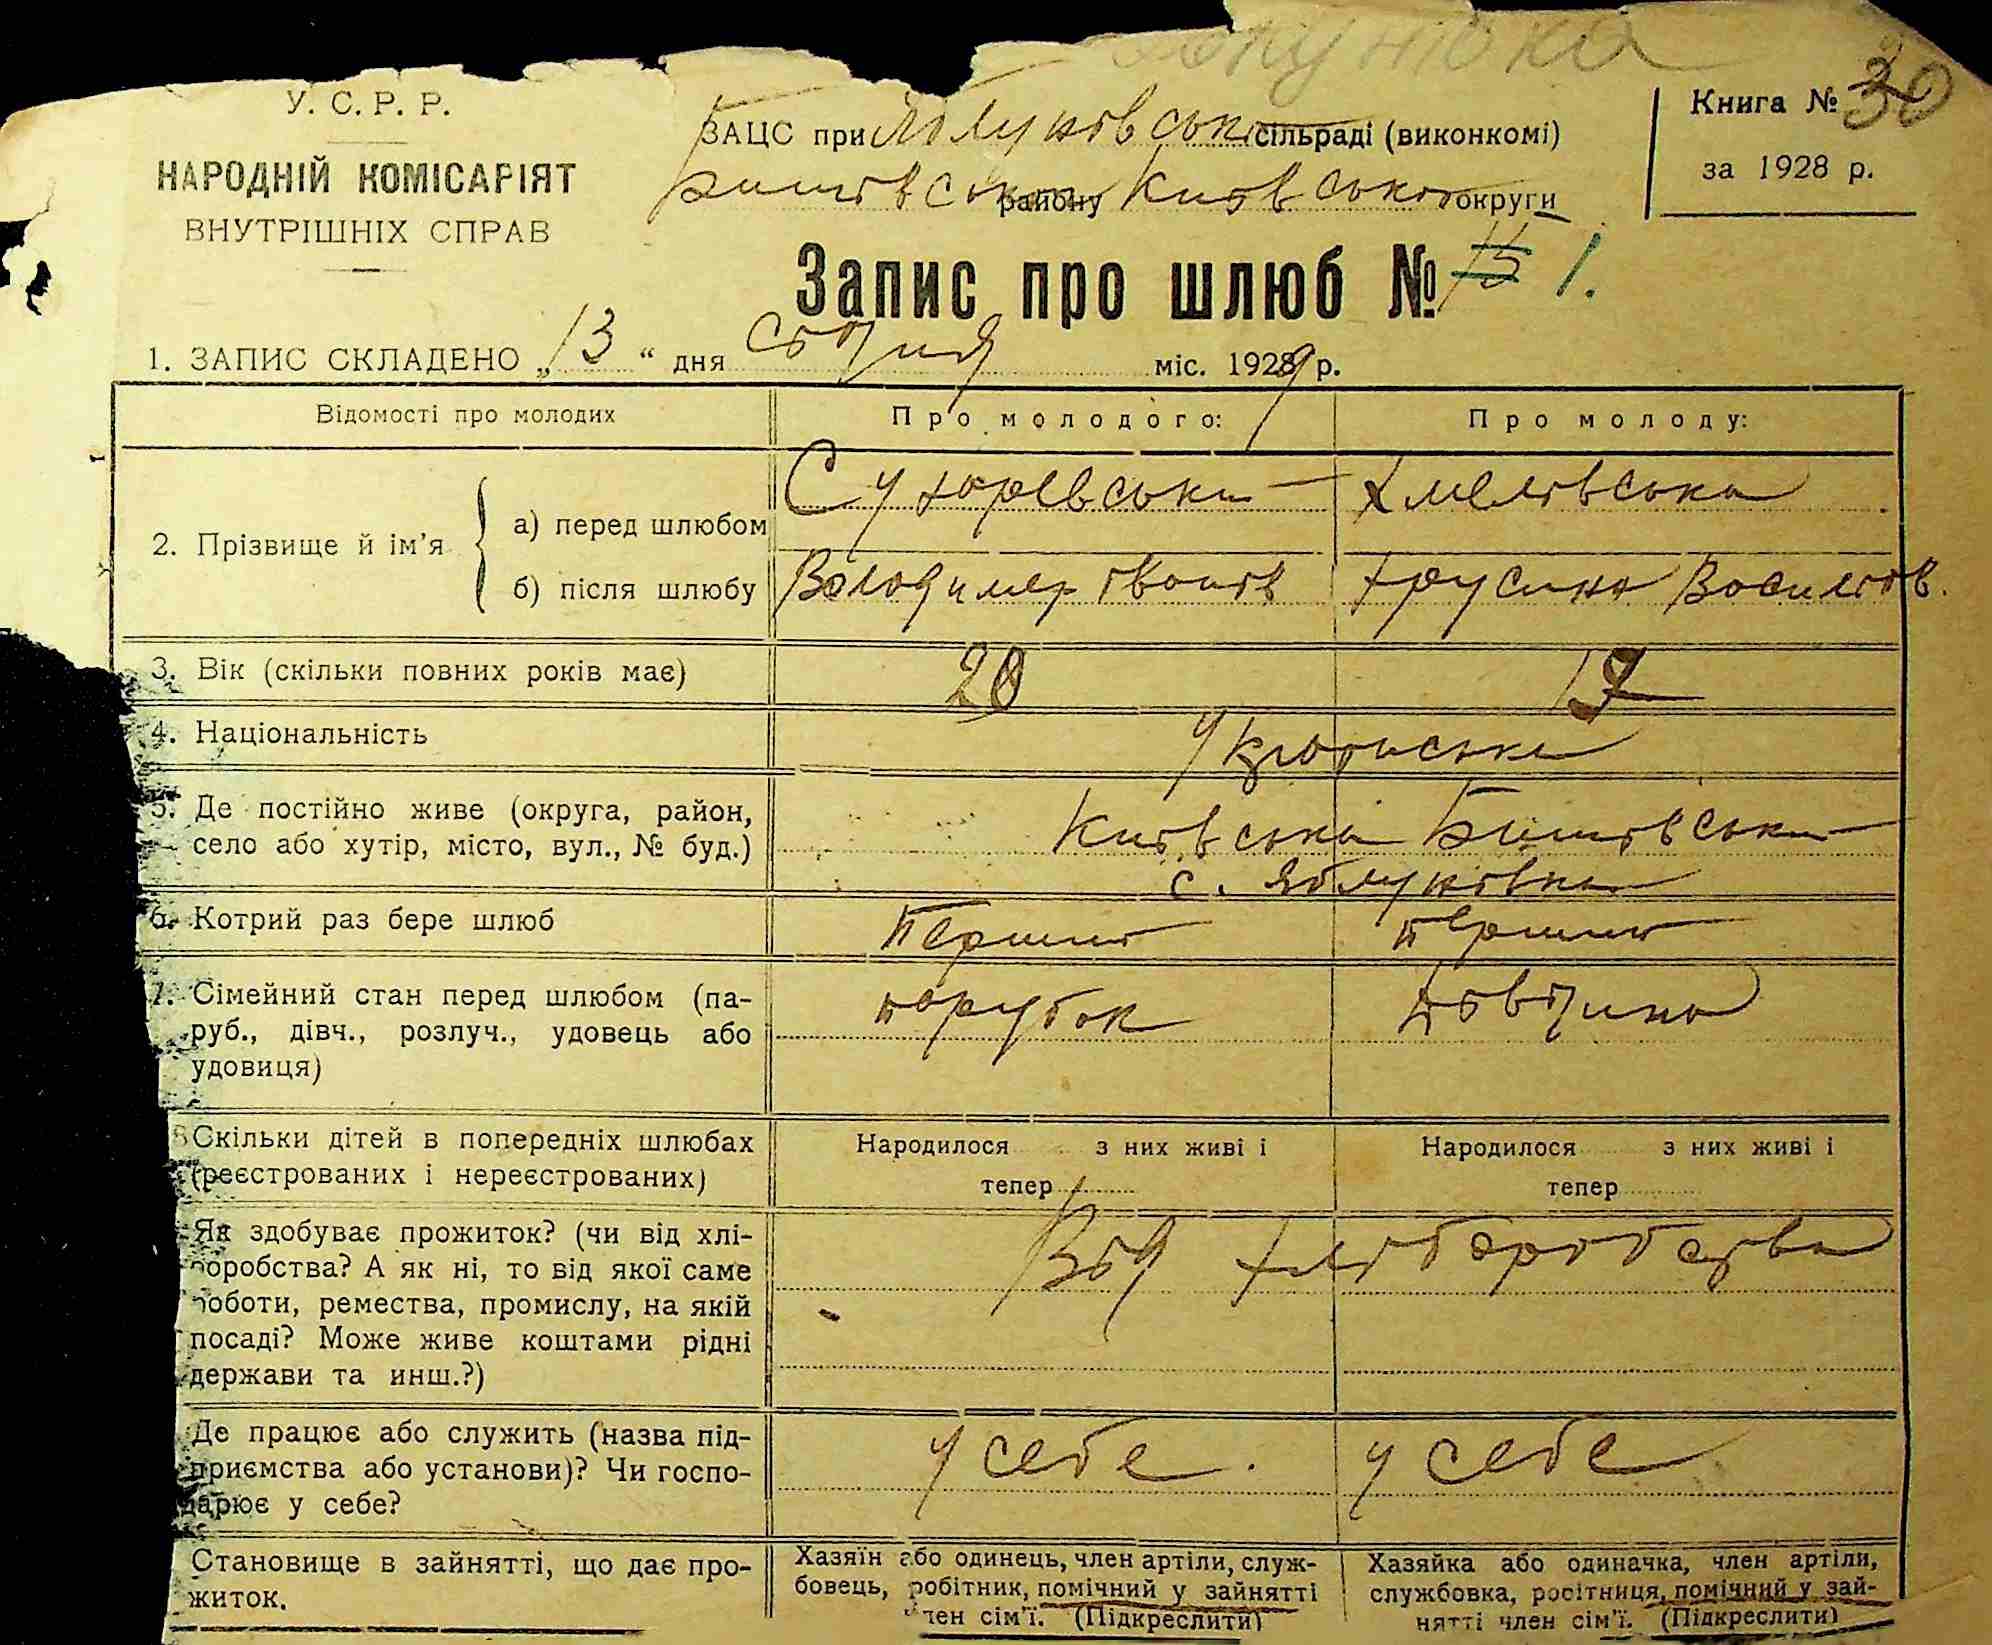 У. С. Р. Р.
НАРОДНІЙ КОМІСАРІЯТ
ВНУТРІШНІХ СПРАВ
ЗАЦС при Яблуківські сільраді (виконкомі)
Бишівська району Київська округи
Книга № 30
за 1928 р.
Запис про шлюб № 1.
1. ЗАПИС СКЛАДЕНО „13“ дня січня міс. 1929 р.
Відомості про молодих
Про молодого:
Про молоду:
2. Прізвище й ім’я
а) перед шлюбом
б) після шлюбу
Сухаревський
Хмелівська
Володимер Іванів
Хрусина Василів.
3. Вік (скільки повних років має)
20
17
4. Національність
Українська
5. Де постійно живе (округа, район,
село або хутір, місто, вул., № буд.)
Київська Бишівська
с. Яблуківка
6. Котрий раз бере шлюб
Перший
перший
7. Сімейний стан перед шлюбом (па-
руб., дівч., розлуч., удовець або
удовиця)
парубок
дівчина
8 Скільки дітей в попередніх шлюбах
(реєстрованих і нереєстрованих)
Народилося з них живі і
тепер
Народилося з них живі і
тепер
Як здобуває прожиток? (чи від хлі-
боробства? А як ні, то від якої саме
роботи, ремества, промислу, на якій
посаді? Може живе коштами рідні
держави та инш.?)
Від хліборобства
Де працює або служить (назва під-
приємства або установи)? Чи госпо-
дарює у себе?
у себе.
у себе
Становище в зайнятті, що дає про-
житок.
Хазяїн або одинець, член артіли, служ-
бовець, робітник, помічний у зайнятті
член сім’ї. (Підкреслити)
Хазяйка або одиначка, член артіли,
службовка, робітниця, помічний у зай-
нятті член сім’ї. (Підкреслити)